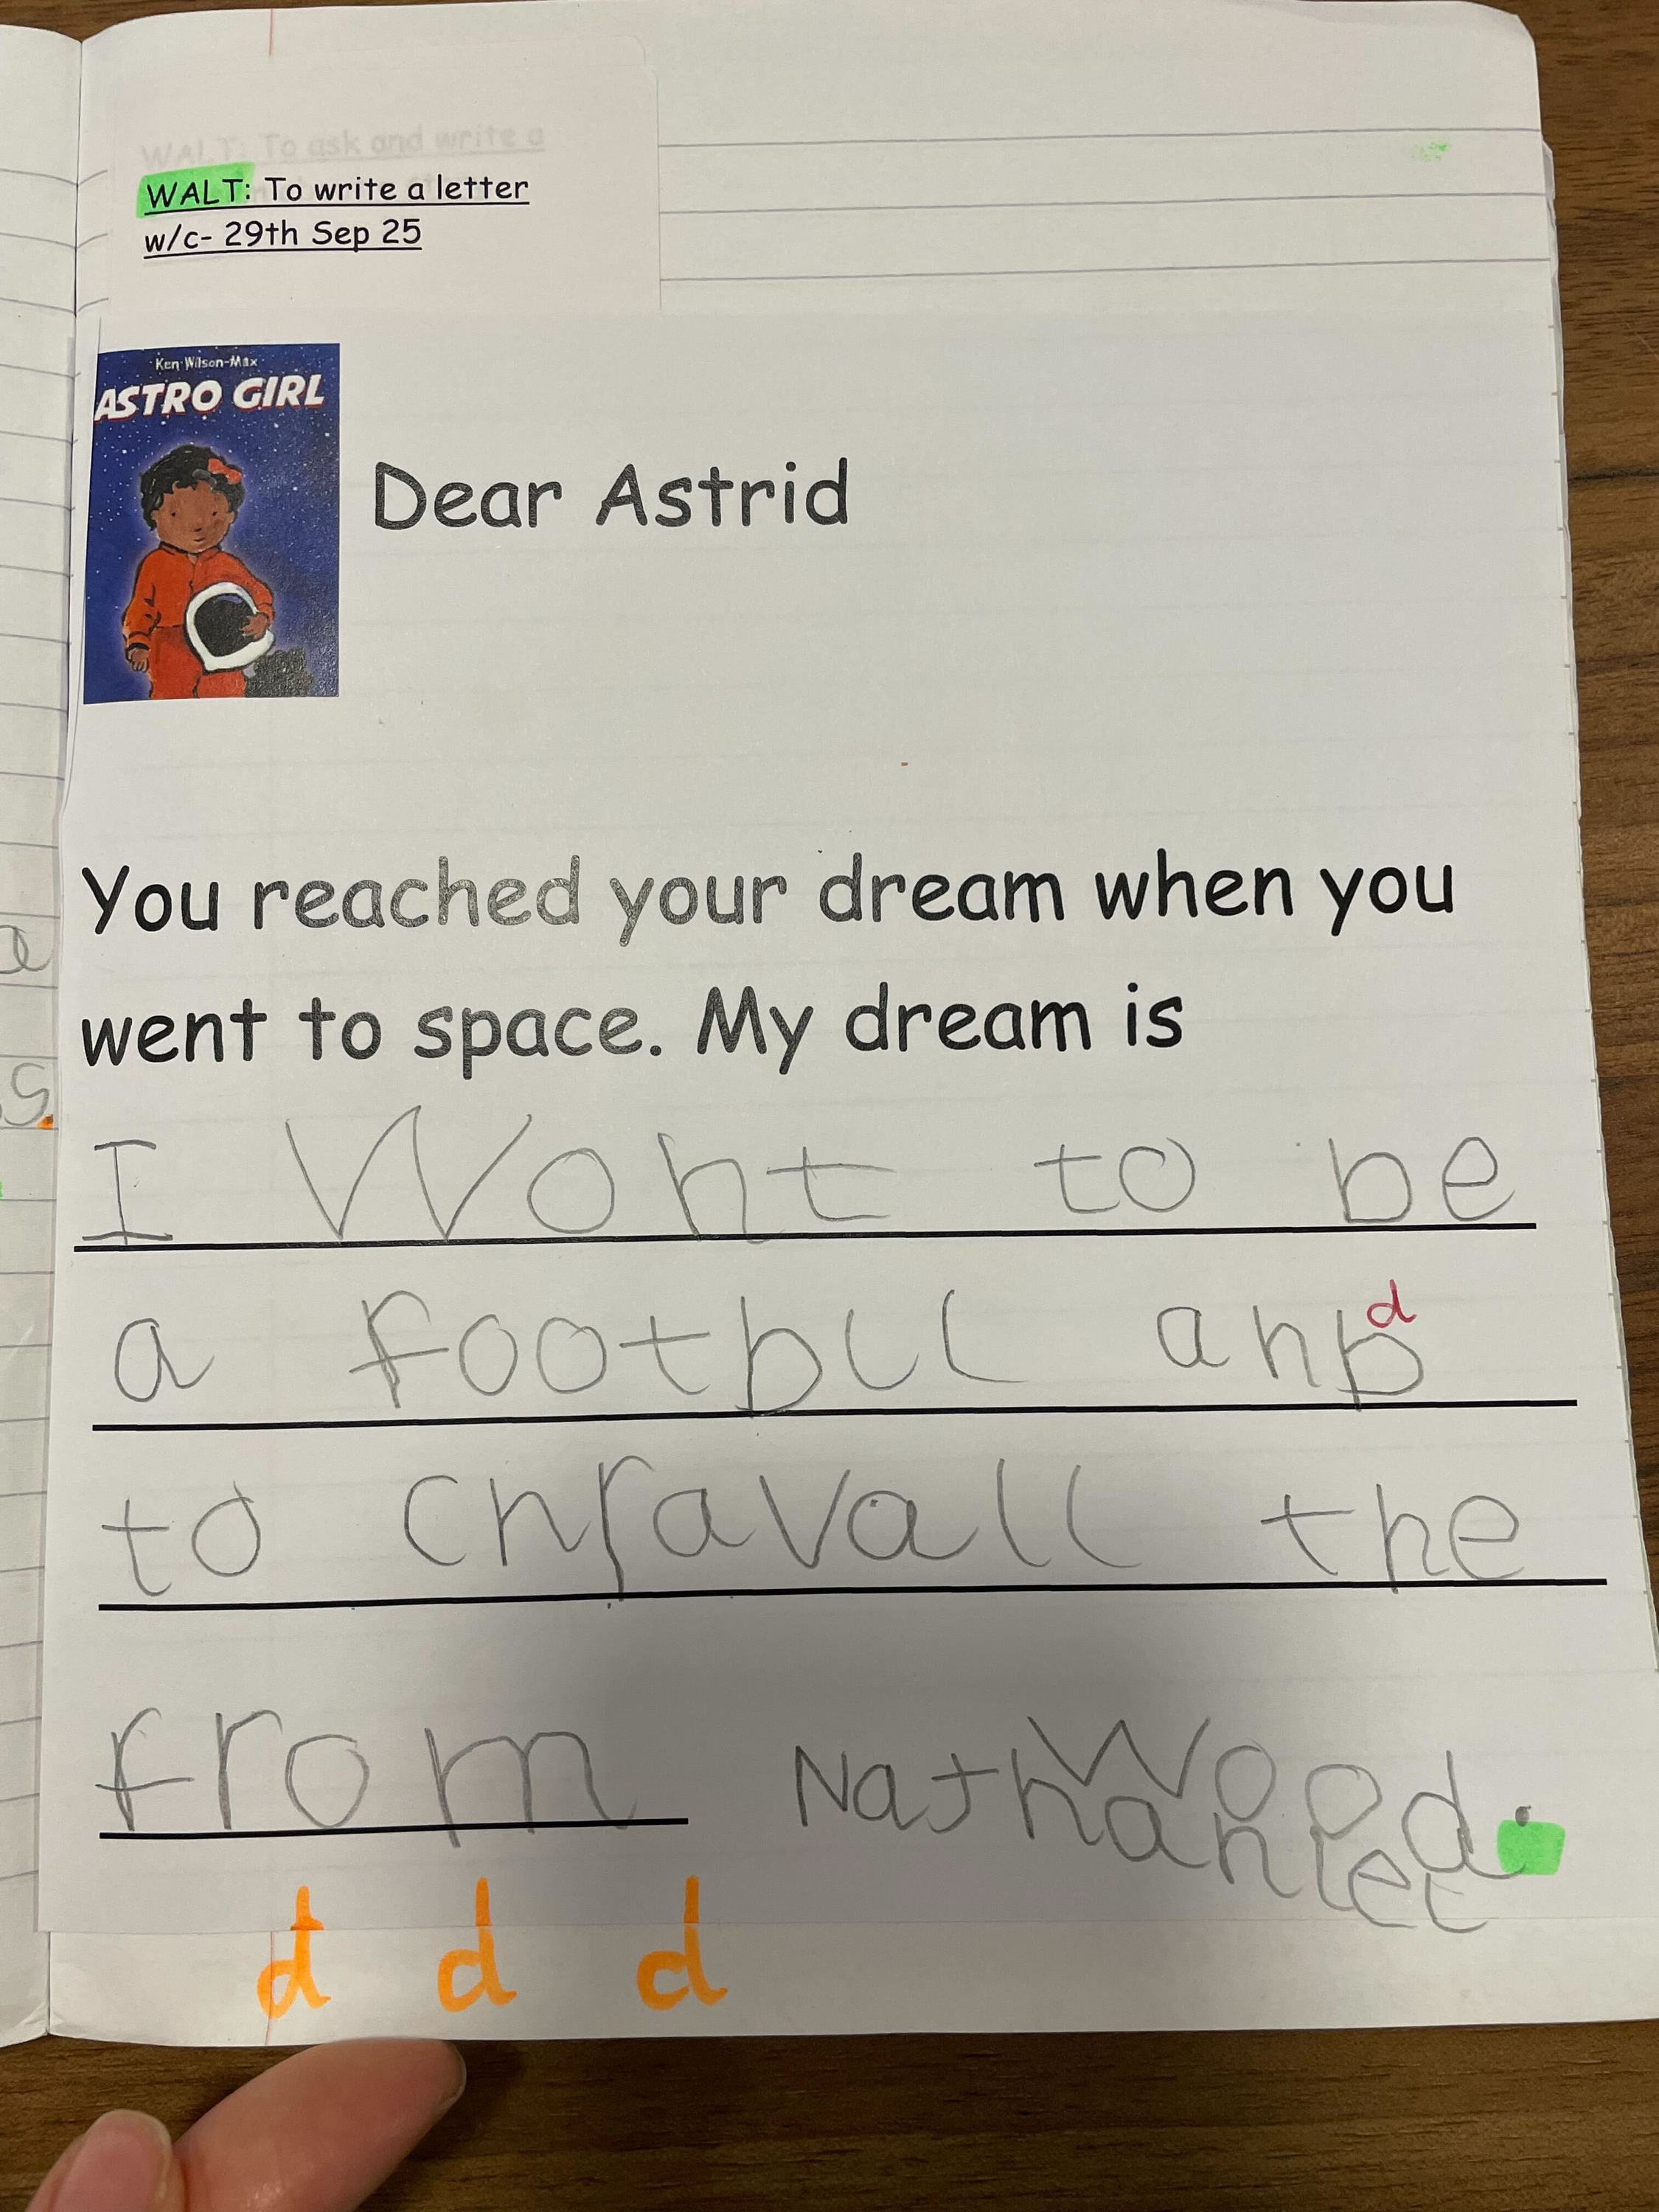 WALT: To ask and write a
WALT: To write a letter
w/c- 29th Sep 25
Ken Wilson-Max
ASTRO GIRL
Dear Astrid
You reached your dream when you
went to space. My dream is
I Wont to be
a footbll anb
d
to chravall the
Wood.
from Nathaniel
d d d